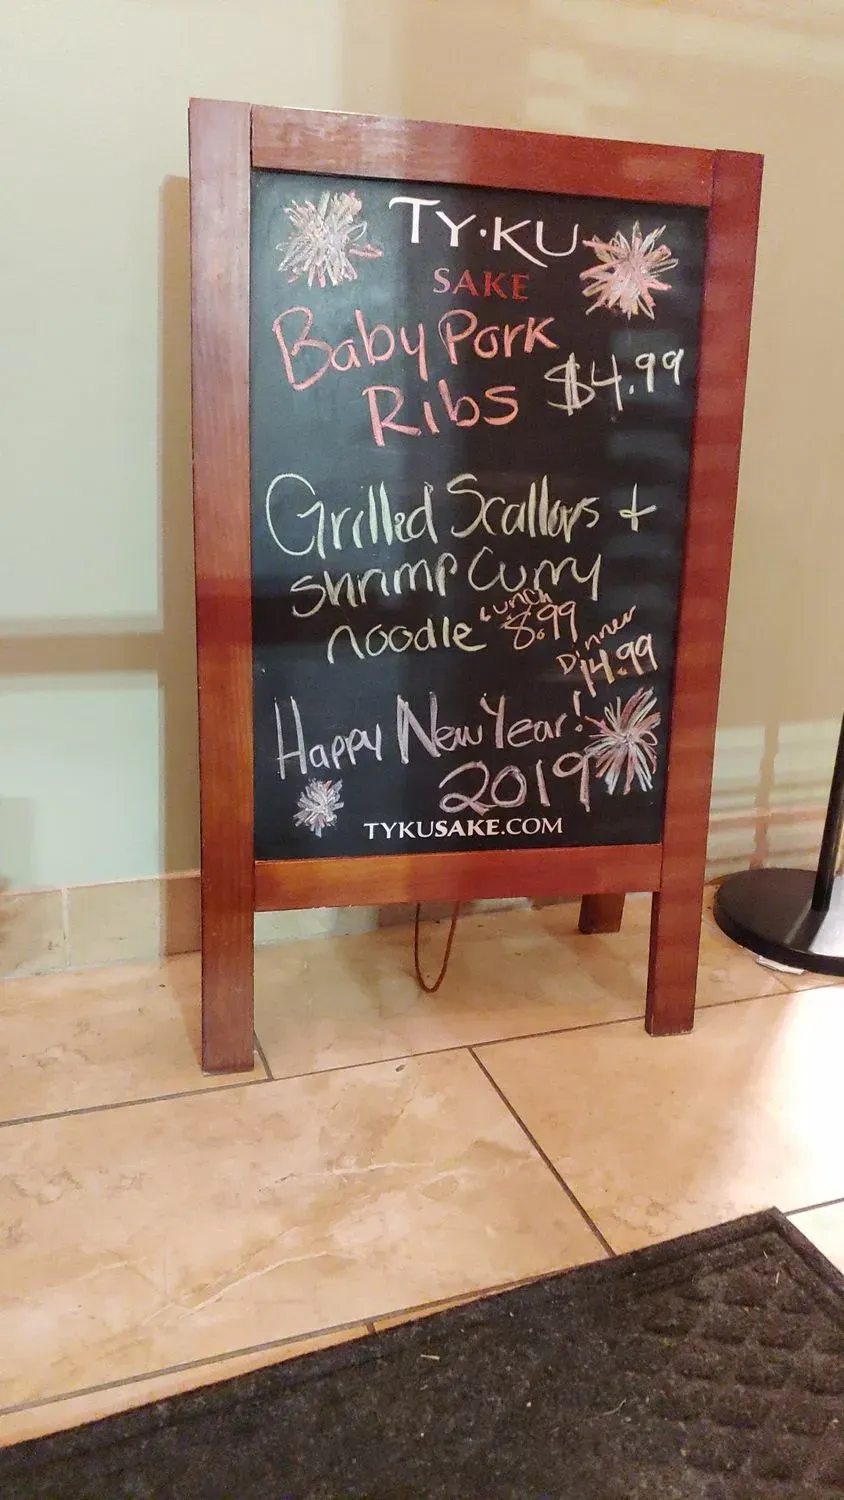 TY·KU
SAKE
Baby Pork
Ribs $4.99
Grilled Scallops +
shrimp Curry
noodle Lunch 8.99
Dinner 14.99
Happy New Year!
2019
TYKUSAKE.COM